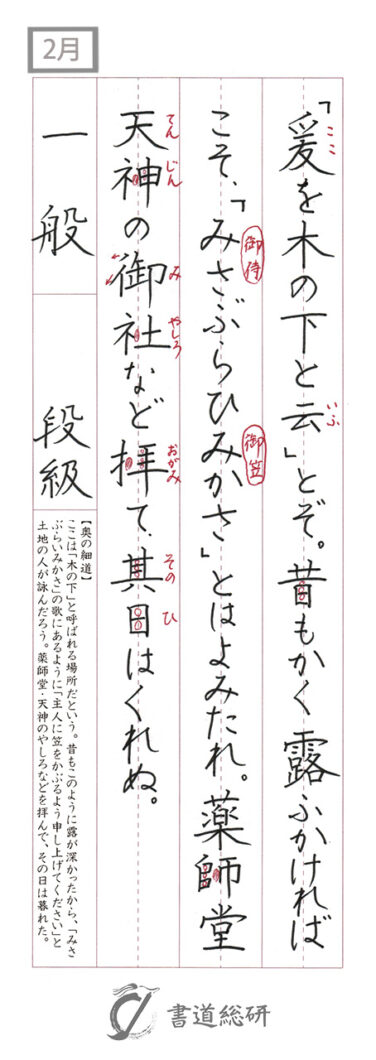 2月
「爰を木の下と云」とぞ。昔もかく露ふかければ
ここ
いふ
こそ、「みさぶらひみかさ」とはよみたれ。薬師堂
御侍
御笠
天神の御社など拝て、其日はくれぬ。
てんじん
み
やしろ
おがみ
その
ひ
一般
段級
【奥の細道】
ここは「木の下」と呼ばれる場所だという。昔もこのように露が深かったから、「みさ
ぶらいみかさ」の歌にあるように「主人に笠をかぶるよう申し上げてください」と
土地の人が詠んだろう。薬師堂・天神のやしろなどを拝んで、その日は暮れた。
書道総研